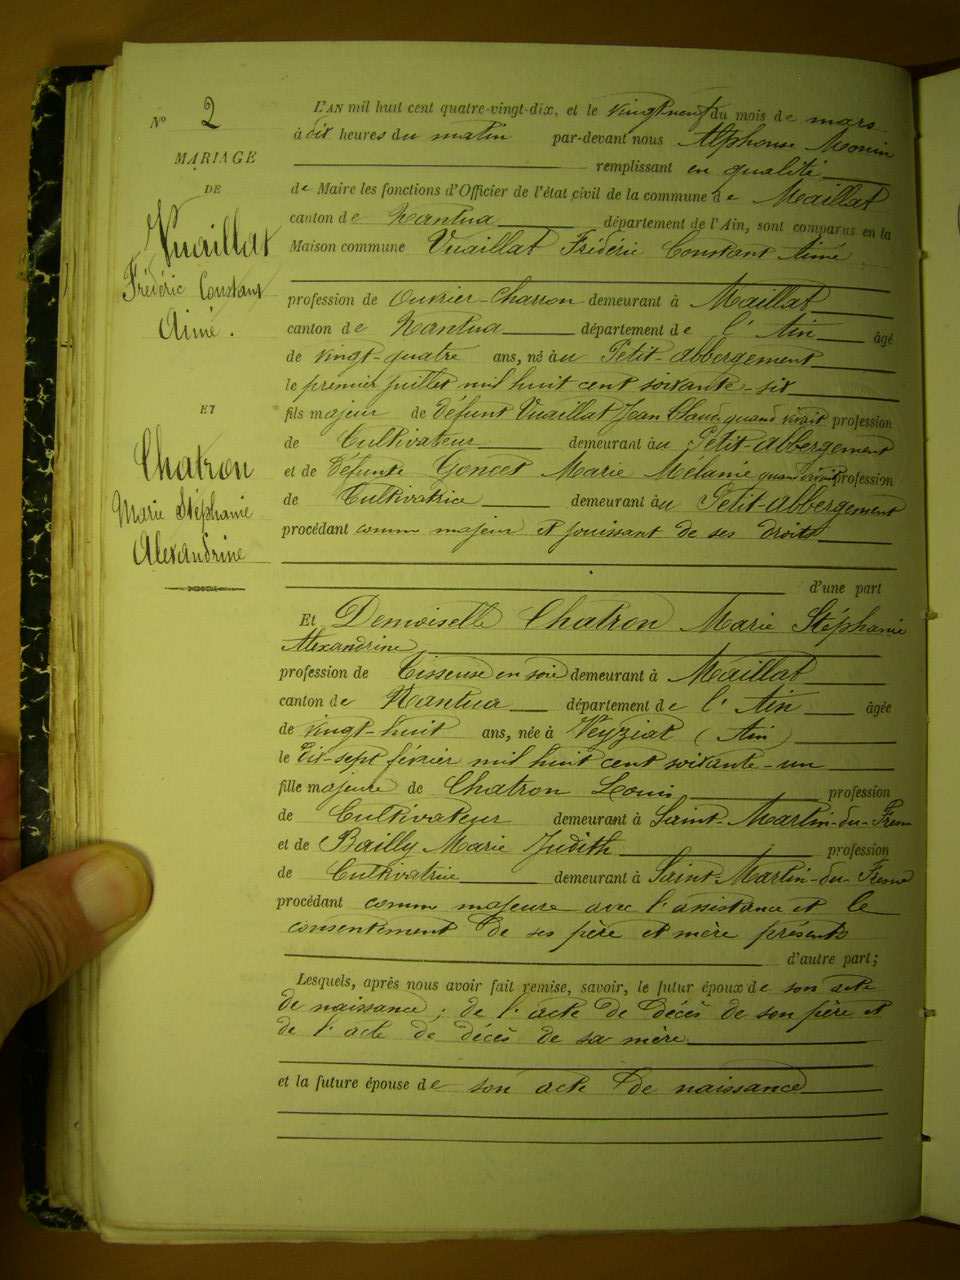 N° 2
MARIAGE
DE
Vuaillat
Frédéric Constant
Aimé.
ET
Chatron
Marie Stéphanie
Alexandrine
L'AN mil huit cent quatre-vingt-dix, et le vingt neuf du mois de mars
à dix heures du matin par-devant nous Alphonse Monin
remplissant en qualité
de Maire les fonctions d'Officier de l'état civil de la commune de Maillat
canton de Nantua département de l'Ain, sont comparus en la
Maison commune Vuaillat Frédéric Constant Aimé
profession de Ouvrier-Charron demeurant à Maillat
canton de Nantua département de l'Ain âgé
de vingt-quatre ans, né au Petit-abbergement
le premier juillet mil huit cent soixante-six
fils majeur de défunt Vuaillat Jean Claude quand vivait profession
de Cultivateur demeurant au Petit-abbergement
et de défunte Goncet Marie Mélanie quand vivait profession
de Cultivatrice demeurant au Petit-abbergement
procédant comme majeur et jouissant de ses droits
d'une part
Et Demoiselle Chatron Marie Stéphanie
Alexandrine
profession de Tisseuse en soie demeurant à Maillat
canton de Nantua département de l'Ain âgée
de vingt-huit ans, née à Veyziat (Ain)
le dix-sept février mil huit cent soixante-un
fille majeure de Chatron Louis profession
de Cultivateur demeurant à Saint-Martin-du-Fresne
et de Bailly Marie Judith profession
de Cultivatrice demeurant à Saint-Martin-du-Fresne
procédant comme majeure avec l'assistance et le
consentement de ses père et mère présents
d'autre part;
Lesquels, après nous avoir fait remise, savoir, le futur époux de son acte
de naissance; de l'acte de décès de son père et
de l'acte de décès de sa mère
et la future épouse de son acte de naissance